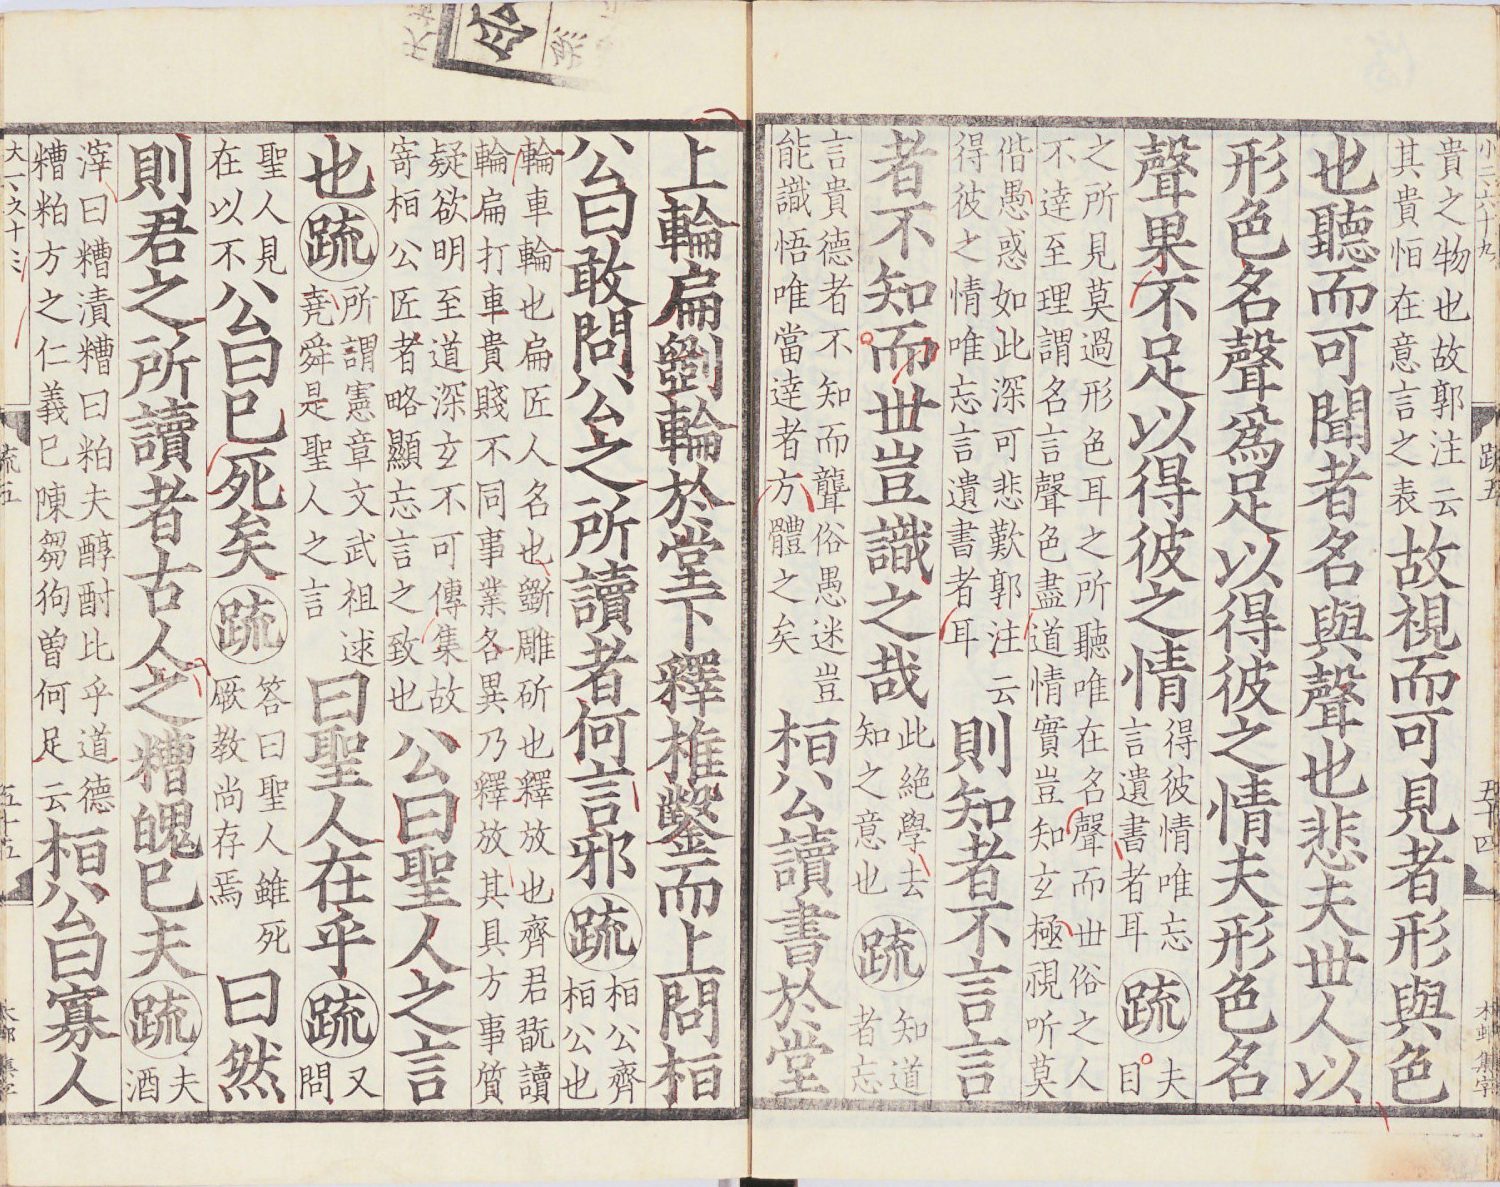 疏五
五十四
貴之物也故郭注云
其貴恒在意言之表
故視而可見者形與色
也聽而可聞者名與聲也悲夫世人以
形色名聲爲足以得彼之情夫形色名
聲果不足以得彼之情
得彼情唯忘
言遺書者耳
疏
夫
目
之所見莫過形色耳之所聽唯在名聲而世俗之人
不達至理謂名言聲色盡道情實豈知玄極視听莫
偕愚惑如此深可悲歎郭注云
得彼之情唯忘言遺書者耳
則知者不言言
者不知而世豈識之哉
此絶學去
知之意也
疏
知道
者忘
言貴德者不知而聾俗愚迷豈
能識悟唯當達者方體之矣
桓公讀書於堂
上輪扁斲輪於堂下釋椎鑿而上問桓
公曰敢問公之所讀者何言邪
疏
桓公齊
桓公也
輪車輪也扁匠人名也斲雕斫也釋放也齊君翫讀
輪扁打車貴賤不同事業各異乃釋放其具方事質
疑欲明至道深玄不可傳集故
寄桓公匠者略顯忘言之致也
公曰聖人之言
也
疏
所謂憲章文武祖逑
堯舜是聖人之言
曰聖人在乎
疏
又
問
聖人見
在以不
公曰已死矣
疏
答曰聖人雖死
厥教尚存焉
曰然
則君之所讀者古人之糟魄已夫
疏
夫
酒
滓曰糟漬糟曰粕夫醇酎比乎道德
糟粕方之仁義已陳芻狗曾何足云
桓公曰寡人